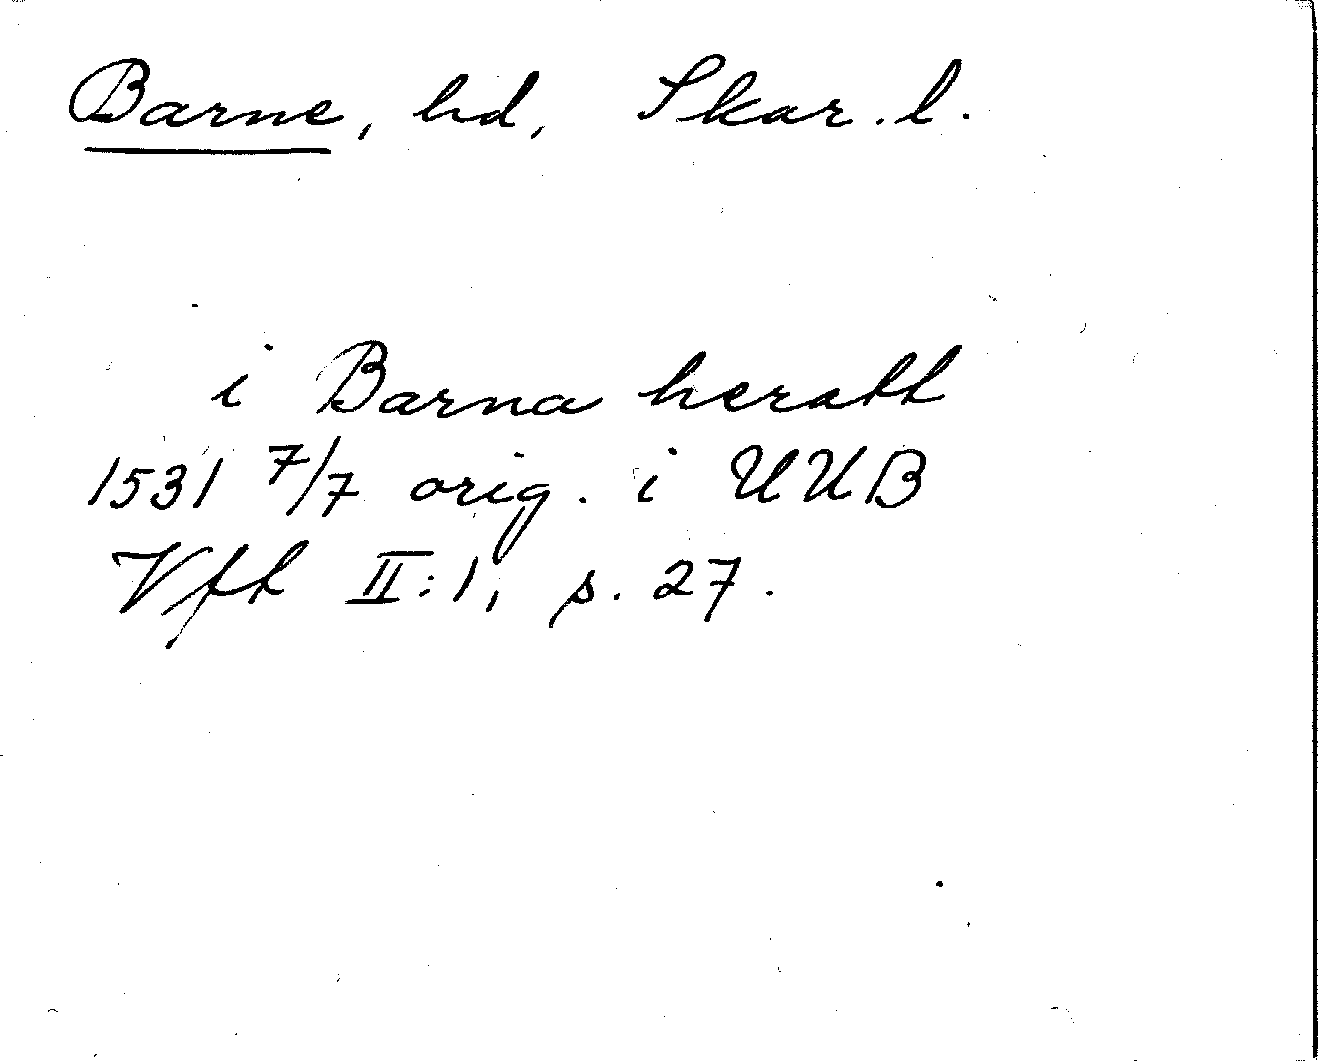 Barne, hd, Skar. l.
i Barna heratt
1531 7/7 orig. i UUB
Vft II:1, s. 27.